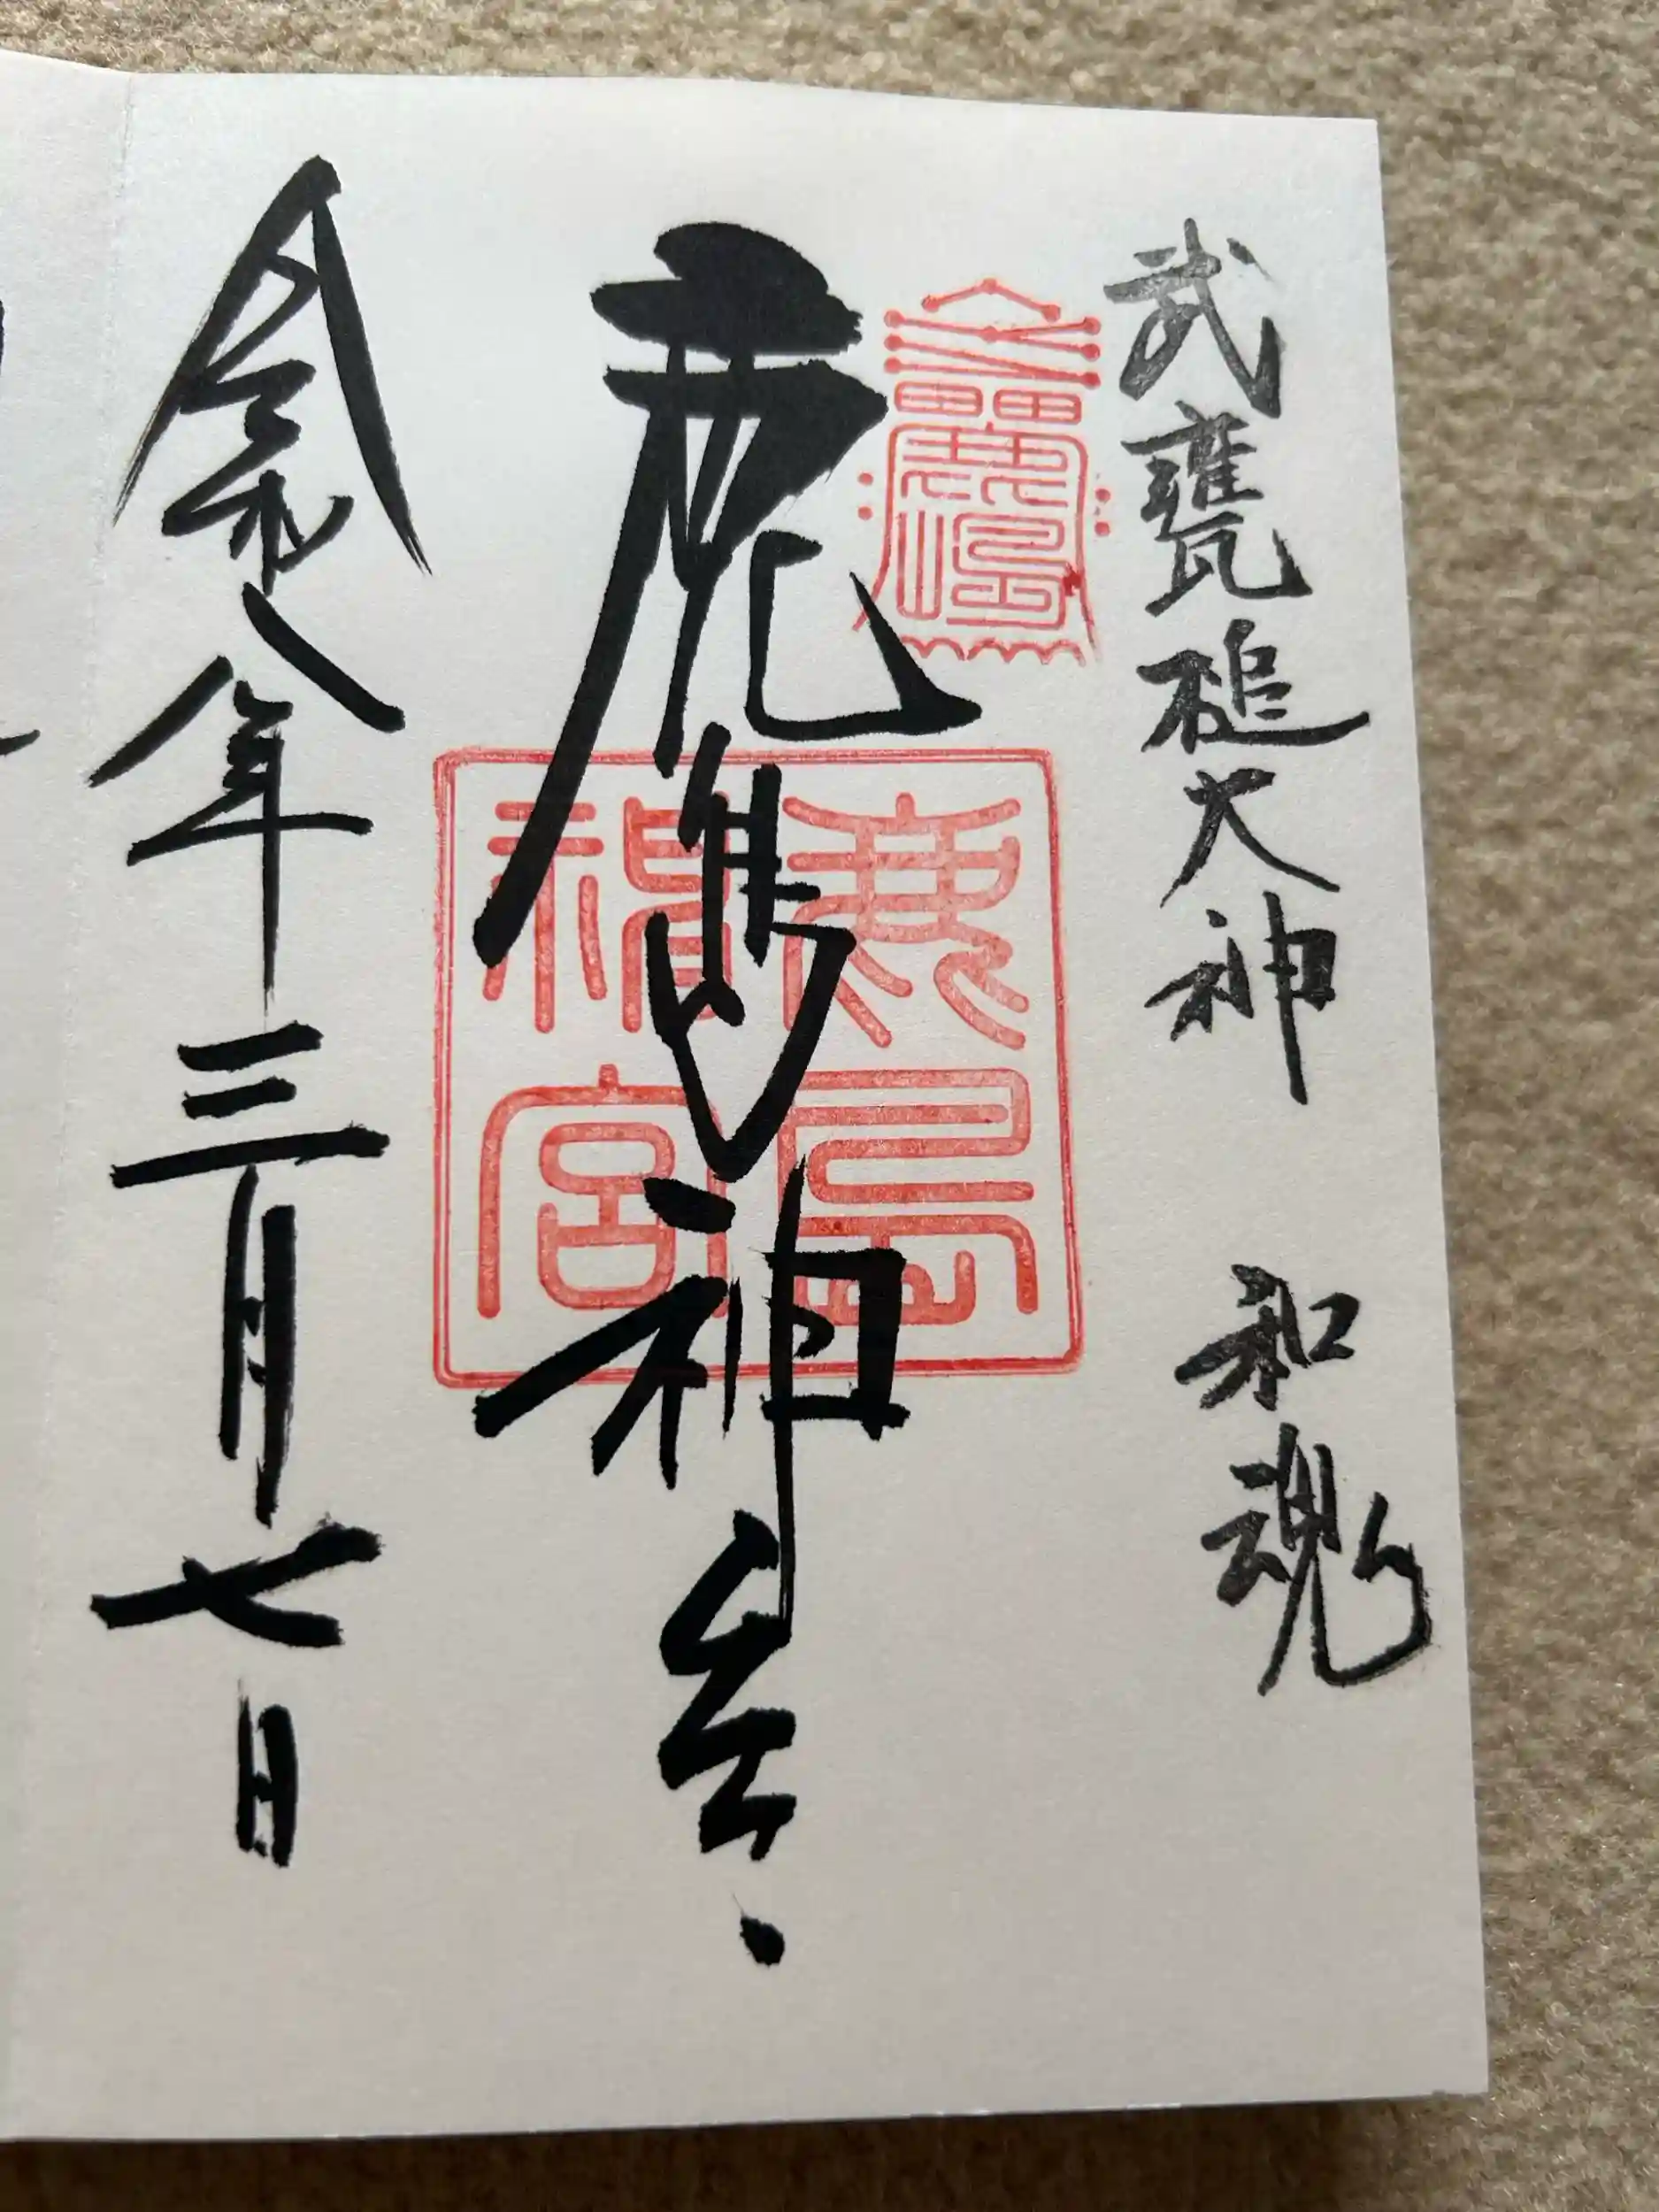 武甕槌大神　和魂
鹿島神宮
令和八年三月七日
鹿島
神宮